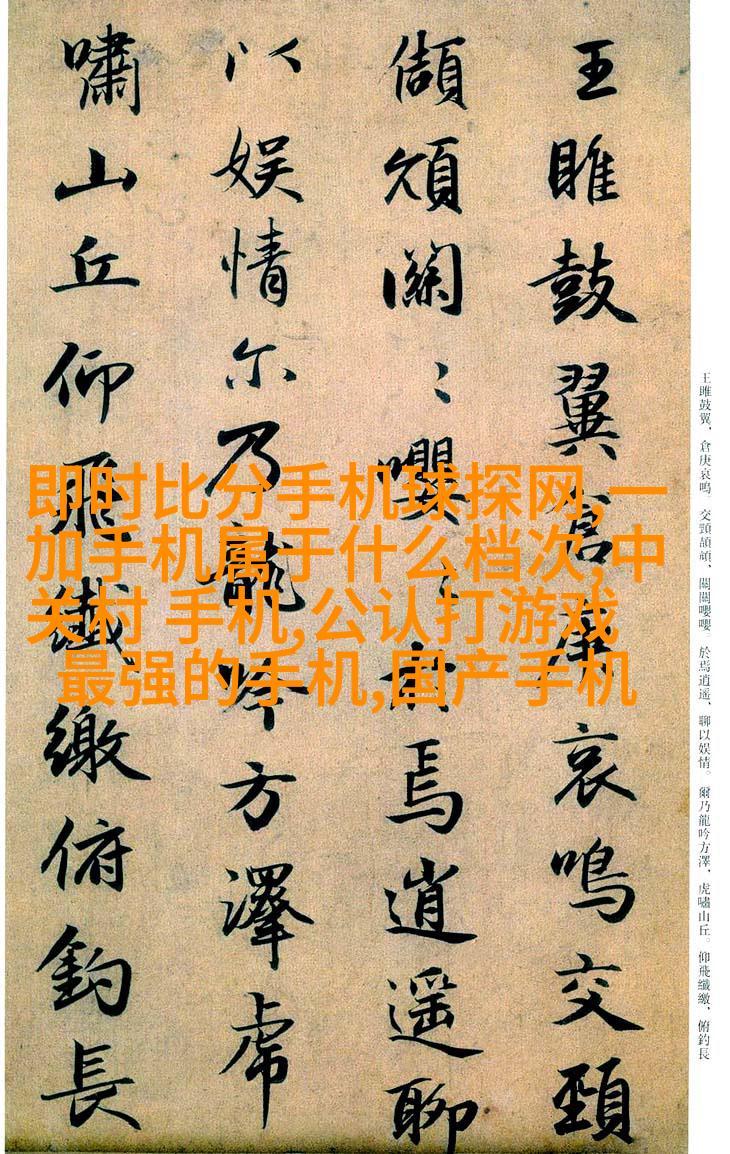 王雎鼓翼倉庚哀鳴交頸
頡頏關〻嚶〻於焉逍遥聊
以娱情尔乃龍吟方澤虎
嘯山丘仰飛纖繳俯釣長
王雎鼓翼、倉庚哀鳴。交頸頡頏、關關嚶嚶。於焉逍遥、聊以娱情。爾乃龍吟方澤、虎嘯山丘。仰飛纖繳、俯釣長
即时比分手机球探网,一
加手机属于什么档次,中
关村 手机,公认打游戏
最强的手机,国产手机